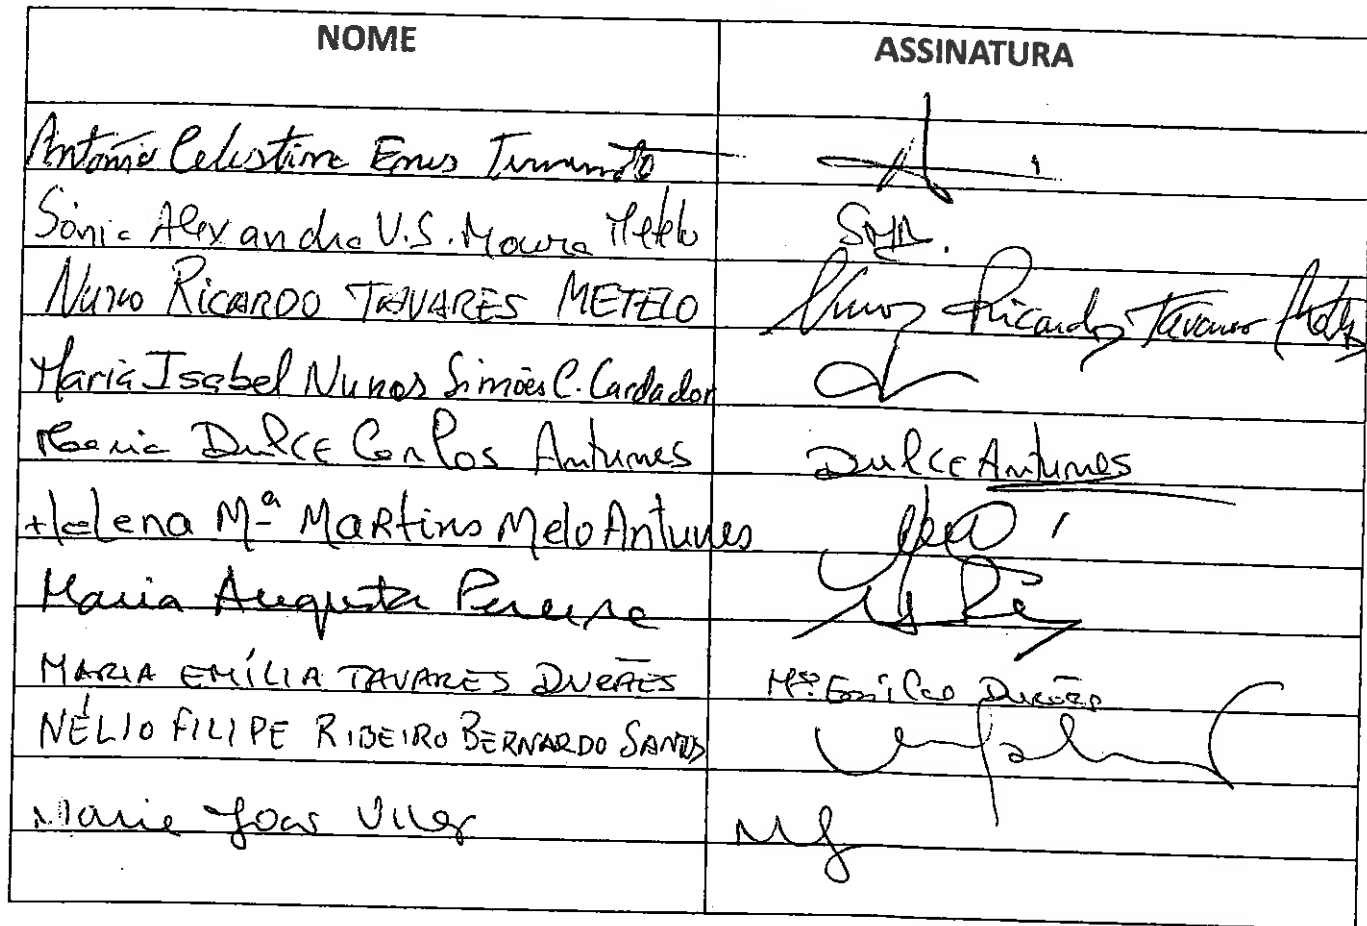 NOME ASSINATURA
António Celestino
Sónia Alexandra V.S. Moura Metelo SMM.
NUNO RICARDO TAVARES METELO Nuno Ricardo Tavares Metelo
Maria Isabel Nunes Simões C. Cardador
Maria DULCE Carlos Antunes DULCE Antunes
Helena Mª Martins Melo Antunes
Maria Augusta Pereira
MARIA EMÍLIA TAVARES DURÃES Mª Emília Durães
NÉLIO FILIPE RIBEIRO BERNARDO SANTOS
Maria João